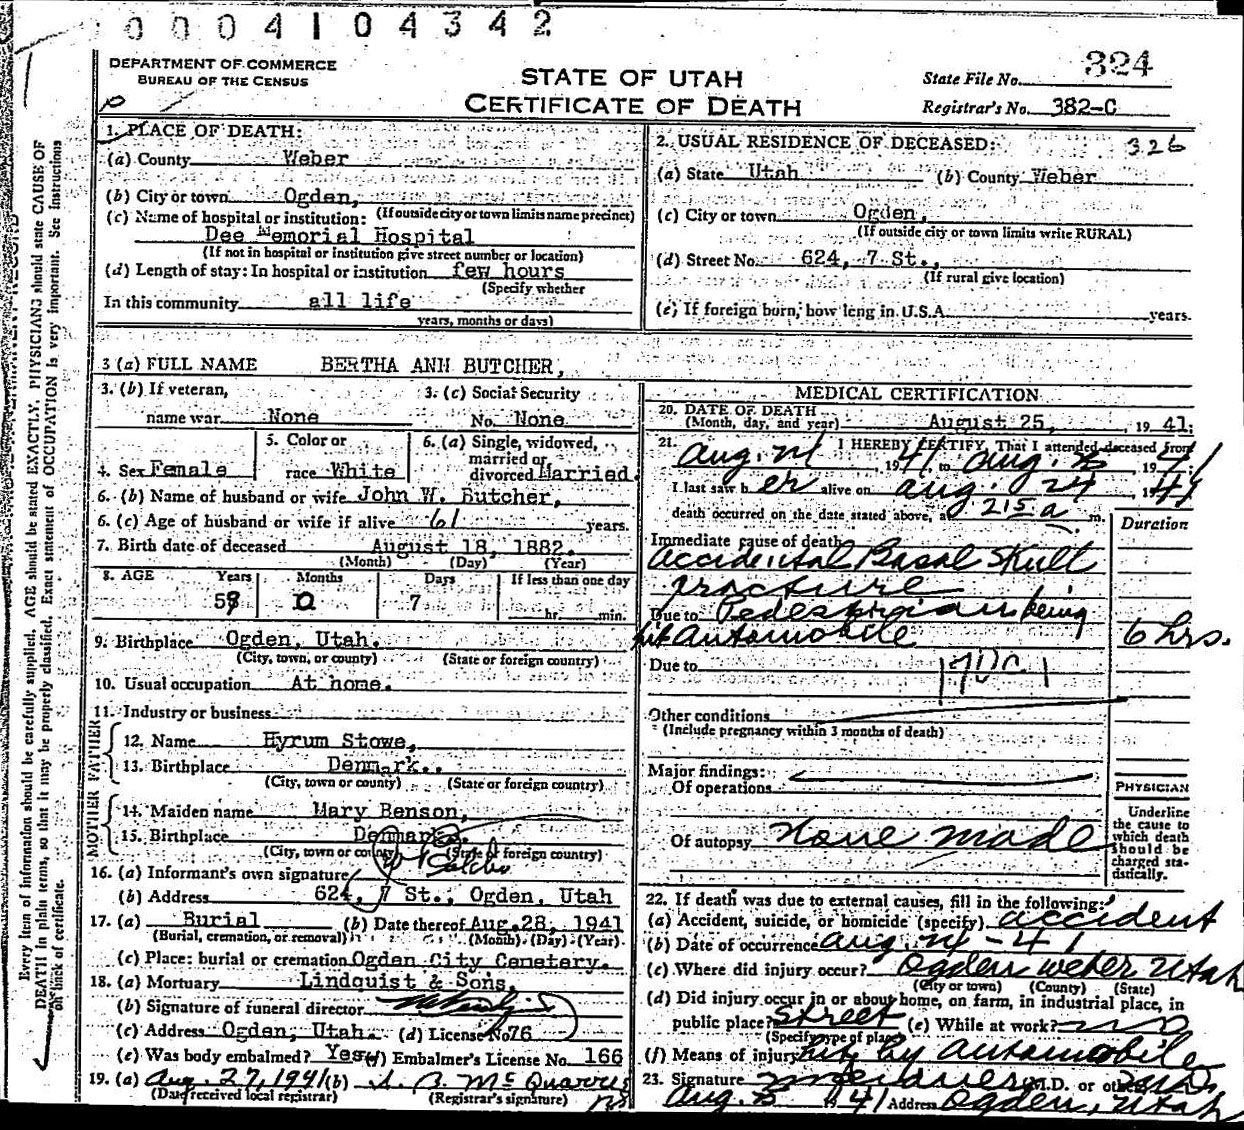 0004104342
DEPARTMENT OF COMMERCE
BUREAU OF THE CENSUS
STATE OF UTAH
CERTIFICATE OF DEATH
State File No. 324
Registrar's No. 382-C
1. PLACE OF DEATH:
(a) County Weber
(b) City or town Ogden,
(If outside city or town limits name precinct)
(c) Name of hospital or institution:
Dee Memorial Hospital
(If not in hospital or institution give street number or location)
(d) Length of stay: In hospital or institution few hours
(Specify whether
In this community all life
years, months or days)
2. USUAL RESIDENCE OF DECEASED: 326
(a) State Utah (b) County Weber
(c) City or town Ogden,
(If outside city or town limits write RURAL)
(d) Street No. 624, 7 St.,
(If rural give location)
(e) If foreign born, how long in U.S.A. years.
3 (a) FULL NAME BERTHA ANN BUTCHER,
3. (b) If veteran,
name war None
3. (c) Social Security
No. None
4. Sex Female
5. Color or
race White
6. (a) Single, widowed,
married or
divorced Married.
6. (b) Name of husband or wife John W. Butcher,
6. (c) Age of husband or wife if alive 61 years.
7. Birth date of deceased August 18, 1882.
(Month) (Day) (Year)
8. AGE Years Months Days If less than one day
59 0 7 hr. min.
9. Birthplace Ogden, Utah.
(City, town, or county) (State or foreign country)
10. Usual occupation At home.
11. Industry or business
FATHER
12. Name Hyrum Stowe,
13. Birthplace Denmark.
(City, town or county) (State or foreign country)
MOTHER
14. Maiden name Mary Benson,
15. Birthplace Denmark.
(City, town or county) (State or foreign country)
16. (a) Informant's own signature
(b) Address 624, 7 St., Ogden, Utah
17. (a) Burial (b) Date thereof Aug. 28, 1941
(Burial, cremation, or removal) (Month) (Day) (Year)
(c) Place: burial or cremation Ogden City Cemetery.
18. (a) Mortuary Lindquist & Sons,
(b) Signature of funeral director
(c) Address Ogden, Utah. (d) License No 76
(e) Was body embalmed? Yes (f) Embalmer's License No. 166
19. (a) Aug. 27, 1941 (b)
(Date received local registrar) (Registrar's signature)
MEDICAL CERTIFICATION
20. DATE OF DEATH
(Month, day, and year) August 25, 1941.
21. I HEREBY CERTIFY, That I attended deceased from
Aug. 24, 1941, to Aug. 25, 1941
I last saw her alive on Aug. 24 1941
death occurred on the date stated above, at 215 a m.
Duration
Immediate cause of death
Accidental Basal Skull
fracture
Due to Pedestrian being
hit automobile 6 hrs.
Due to
Other conditions
(Include pregnancy within 3 months of death)
Major findings:
Of operations
Of autopsy None made
PHYSICIAN
Underline
the cause to
which death
should be
charged sta-
tistically.
22. If death was due to external causes, fill in the following:
(a) Accident, suicide, or homicide (specify) accident
(b) Date of occurrence Aug. 24 - 41
(c) Where did injury occur? Ogden Weber Utah
(City or town) (County) (State)
(d) Did injury occur in or about home, on farm, in industrial place, in
public place? Street (e) While at work? no
(Specify type of place)
(f) Means of injury hit by automobile
23. Signature M.D. or other
Aug. 25 1941 Address Ogden, Utah
Every item of information should be carefully supplied. AGE should be stated EXACTLY. PHYSICIANS should state CAUSE OF
DEATH in plain terms, so that it may be properly classified. Exact statement of OCCUPATION is very important. See Instructions
on back of certificate.